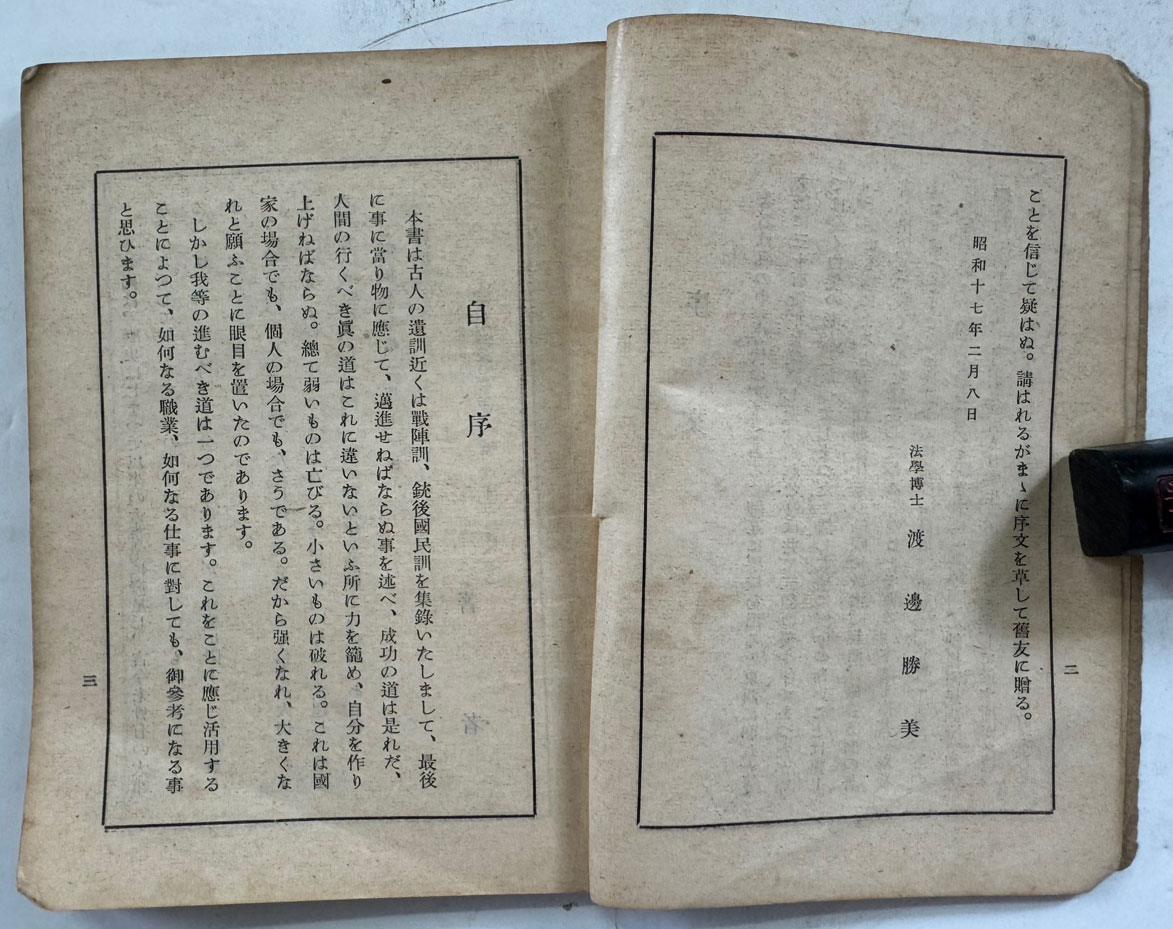 ことを信じて疑はぬ。請はれるがまゝに序文を草して舊友に贈る。
昭和十七年二月八日
法學博士 渡邊勝美
二
自序
本書は古人の遺訓近くは戰陣訓、銃後國民訓を集錄いたしまして、最後
に事に當り物に應じて、邁進せねばならぬ事を述べ、成功の道は是れだ、
人間の行くべき眞の道はこれに違いないといふ所に力を籠め、自分を作り
上げねばならぬ。總て弱いものは亡びる。小さいものは破れる。これは國
家の場合でも、個人の場合でも、さうである。だから强くなれ、大きくな
れと願ふことに眼目を置いたのであります。
しかし我等の進むべき道は一つであります。これをことに應じ活用する
ことによつて、如何なる職業、如何なる仕事に對しても、御參考になる事
と思ひます。
三